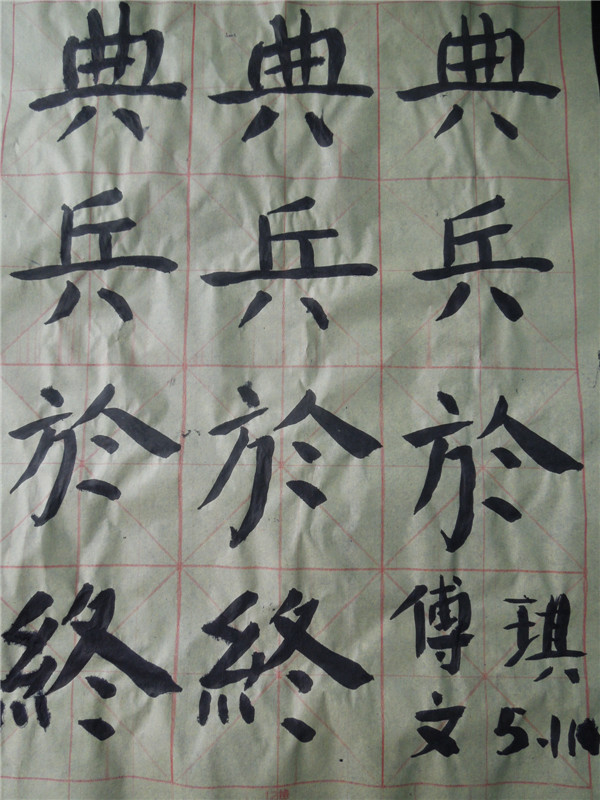 典典典
兵兵兵
於於於
終終傅琪
文5.11